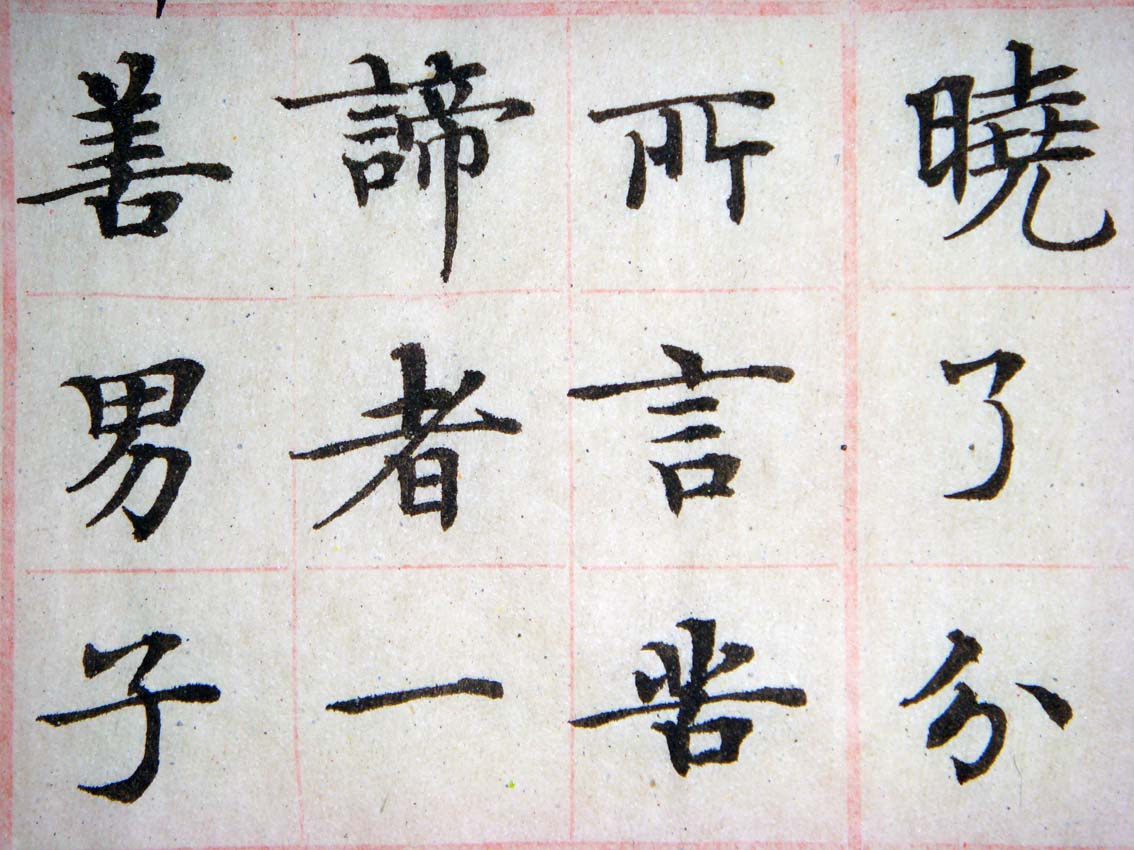 曉了分
所言苦
諦者一
善男子